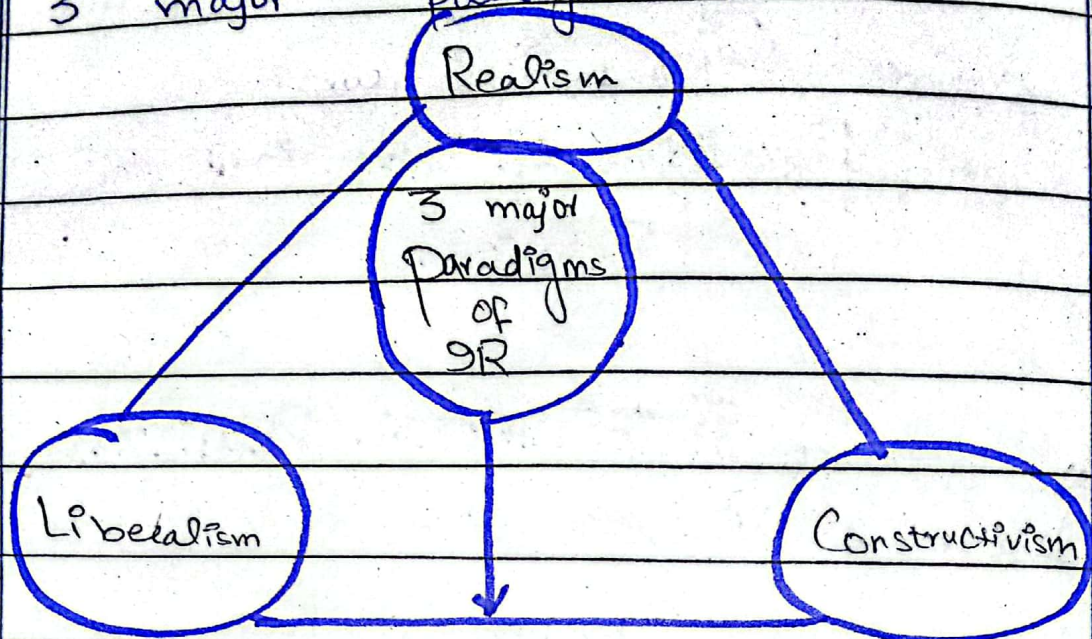 3 major
Realism
3 major
paradigms
of
IR
Liberalism
Constructivism